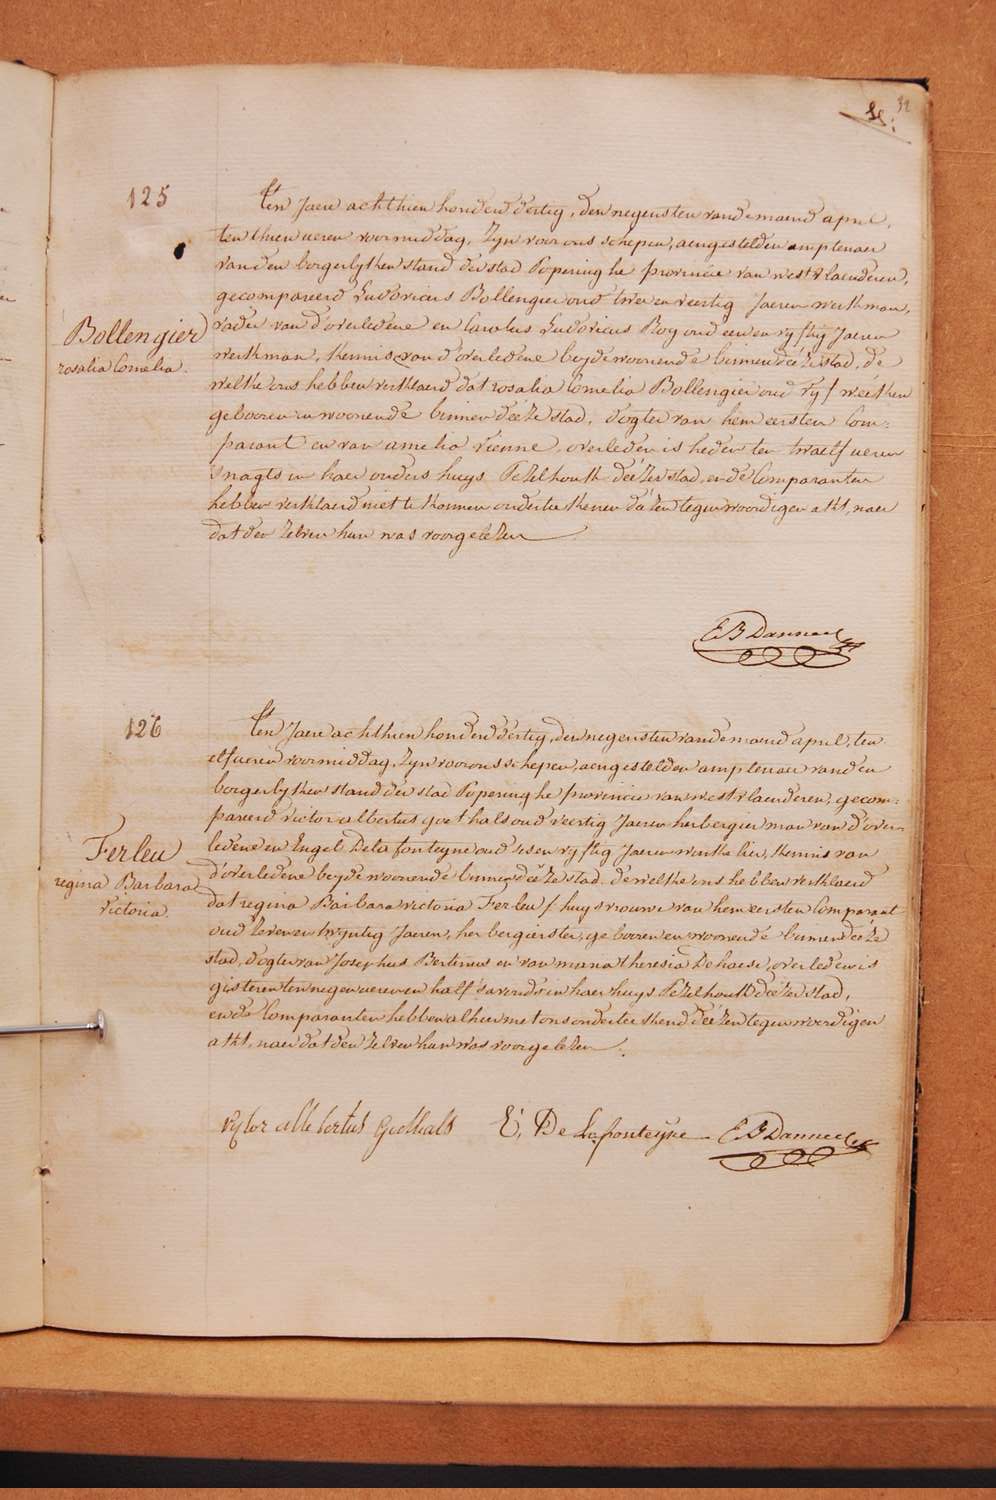 32
125
Ten Jaere achthien honderd dertig, den negensten vande maend april,
ten thien ueren voormiddag, zyn voor ons schepen, aengestelden amptenaer
van den borgerlyken stand der stad Poperinghe provincie van westvlaenderen,
gecompareerd Ludovicus Bollengier oud twee en veertig Jaeren werkman,
Bollengier
vader van d'overledene en Carolus Ludovicus Roy oud een en vyftig Jaeren
rosalia Cornelia.
werkman, kennis van d'overledene beyde woonende binnen deéze stad, de
welke ons hebben verklaerd dat rosalia Cornelia Bollengier oud vyf weéken
geboren en woonende binnen deéze stad, dogter van hem eersten Com-
parant en van amelia vienne, overleden is heden ten twaelf ueren
's nagts in haer ouders huys Pezelhoek deézer stad, en de Comparanten
hebben verklaerd niet te konnen onderteekenen dézen tegenwoordigen akt, naer
dat den zelven hun was voorgelezen
E B Danneel
126
Ten Jaere achthien honderd dertig, den negensten vande maend april, ten
elf ueren voormiddag, zyn voor ons schepen, aengestelden amptenaer vanden
borgerlyken stand der stad Poperinghe provincie van westvlaenderen, gecom-
pareerd victor albertus goethals oud veertig Jaeren herbergier man van d'over-
Ferleu
ledene en Engel Dela fonteyne oud sesenvyftig Jaeren winkelier, kennis van
regina Barbara
d'overledene beyde woonende binnen deéze stad, de welke ons hebben verklaerd
victoria.
dat regina Barbara victoria Ferleu / huysvrouwe van hem eersten Comparant
oud zeven en twyntig Jaeren, herbergierster, geboren en woonende binnen deéze
stad, dogter van Josephus Bertinus en van maria theresia Dehaese, overleden is
gisteren ten negen ueren en half 's avonds in haer huys Pezelhoek deézer stad,
en de Comparanten hebben alhier met ons onderteekend deézen tegenwoordigen
akt, naer dat den zelven hun was voorgelezen.
vyktor allebertus Goethals E, De Lafonteyne E B Danneel